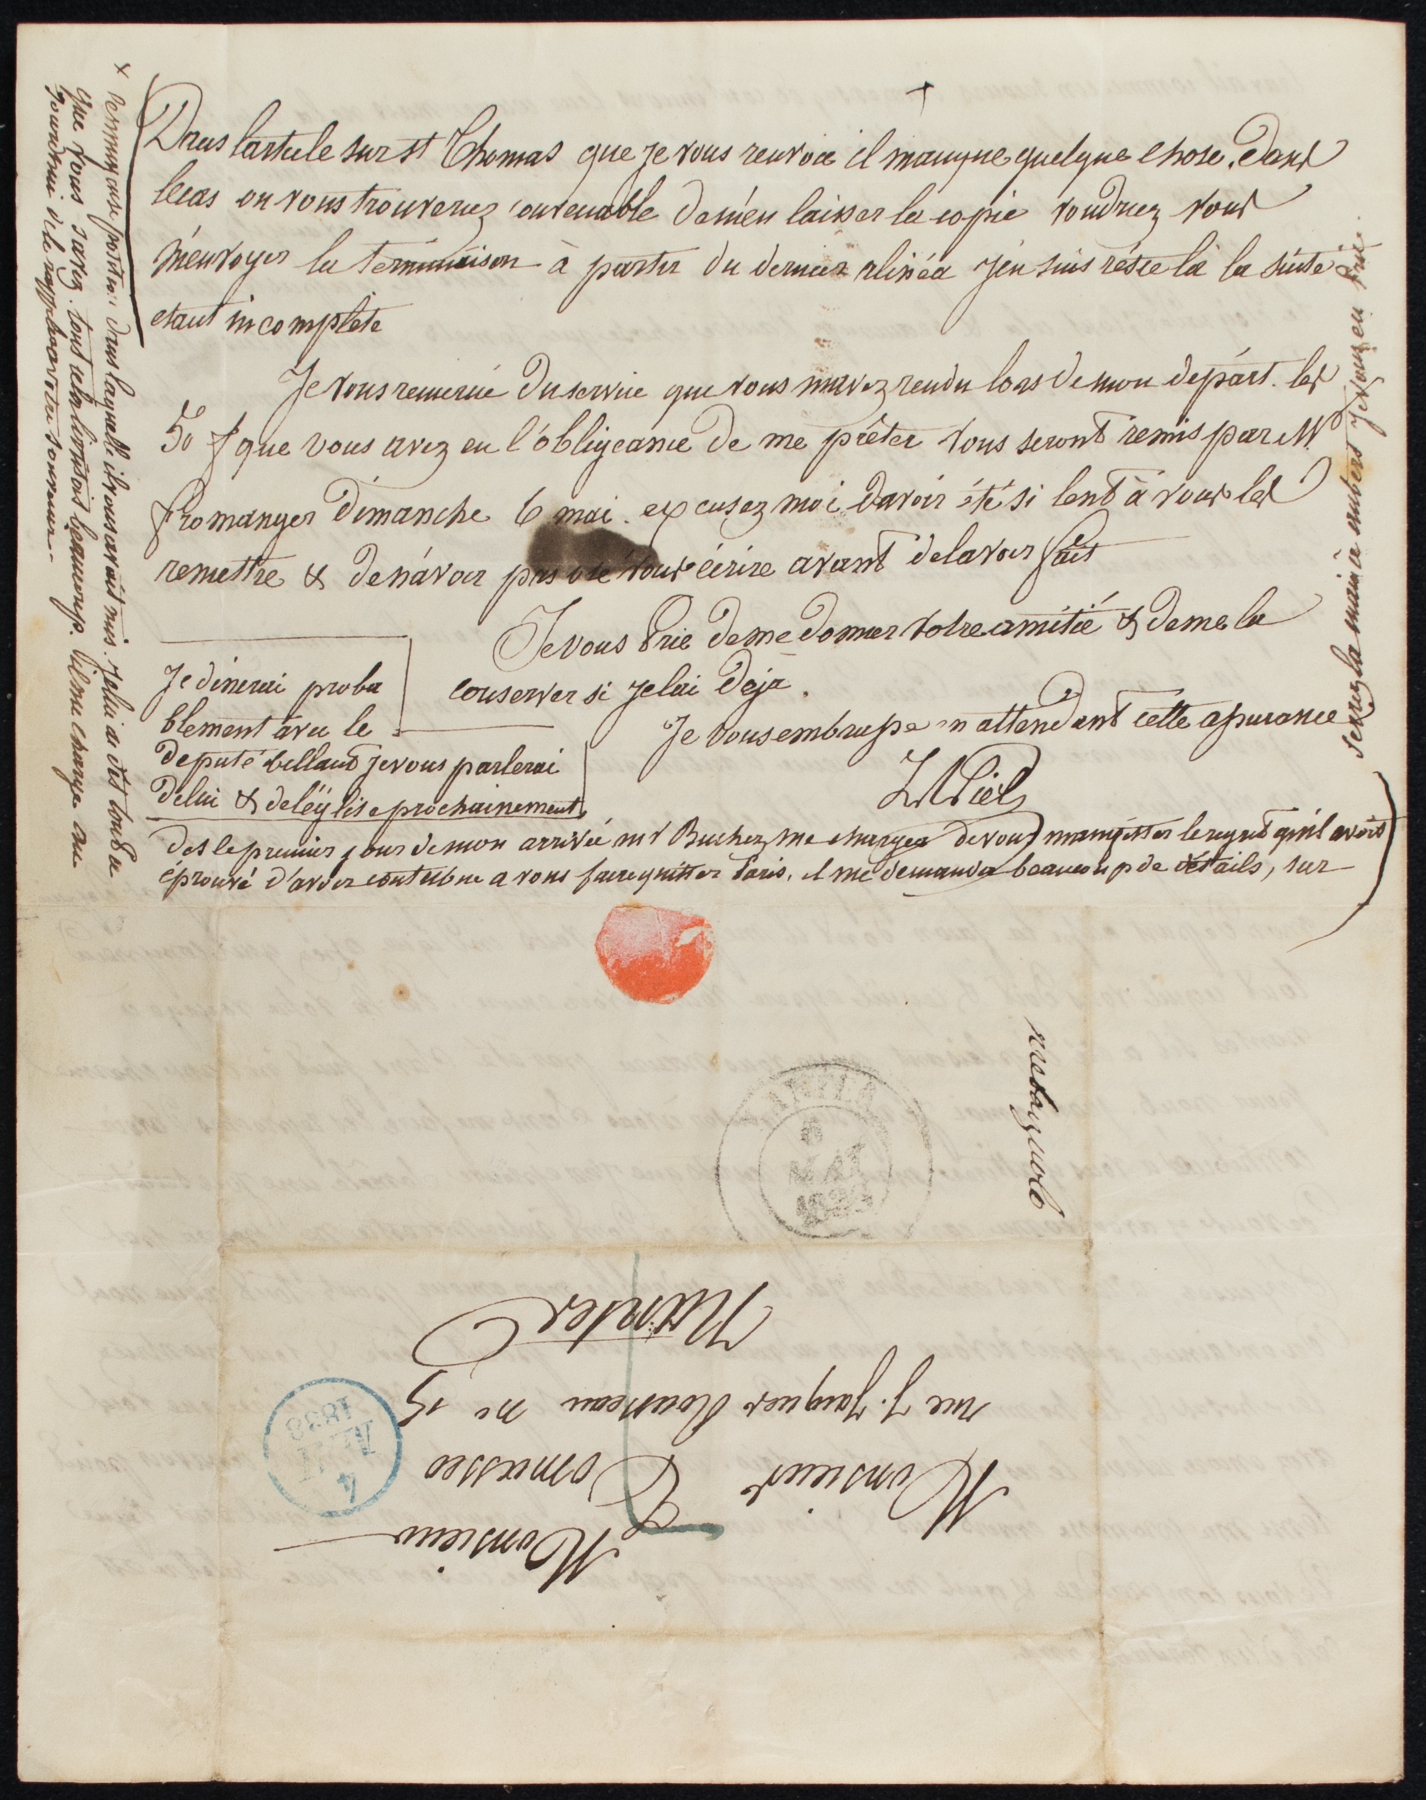 Dans l'article sur st Thomas que je vous renvoie il manque quelque chose. dans
le cas ou vous trouveriez convenable de m'en laisser la copie voudriez vous
m'envoyer la terminaison à partir du dernier alinéa j'en suis resté là la suite
etant incomplète
Je vous remercie du service que vous m'avez rendu lors de mon départ. les
50 f que vous avez eu l'obligeance de me prêter vous seront remis par Mr
fromanger dimanche 6 mai. excusez moi d'avoir été si lent à vous les
remettre & de n'avoir pas osé vous écrire avant de l'avoir fait
Je vous Prie de me donner votre amitié & de me la
conserver si je l'ai déjà.
Je vous embrasse en attendant cette assurance
LAPiel
serrez la main à je vous en prie.
Je dinerai proba
blement avec le
deputé billaud je vous parlerai
de lui & de l'église prochainement
des le premier jour de mon arrivée mr Buchez me chargea de vous manifester le regret qu'il avait
éprouvé d'avoir contribué a vous faire quitter Paris. il me demanda beaucoup de details, sur
+ dans laquelle il vous avait mis. je lui ai dit tout ce
que vous savez. tout cela l'ontois beaucoup. il me charge au
jourd'hui de le rappeler a votre souvenir.
NANTES
6
MAI
1838
Monsieur
Monsieur Tomaseo
rue J. Jacques Rousseau no 15
Nantes
4
MAI
1838